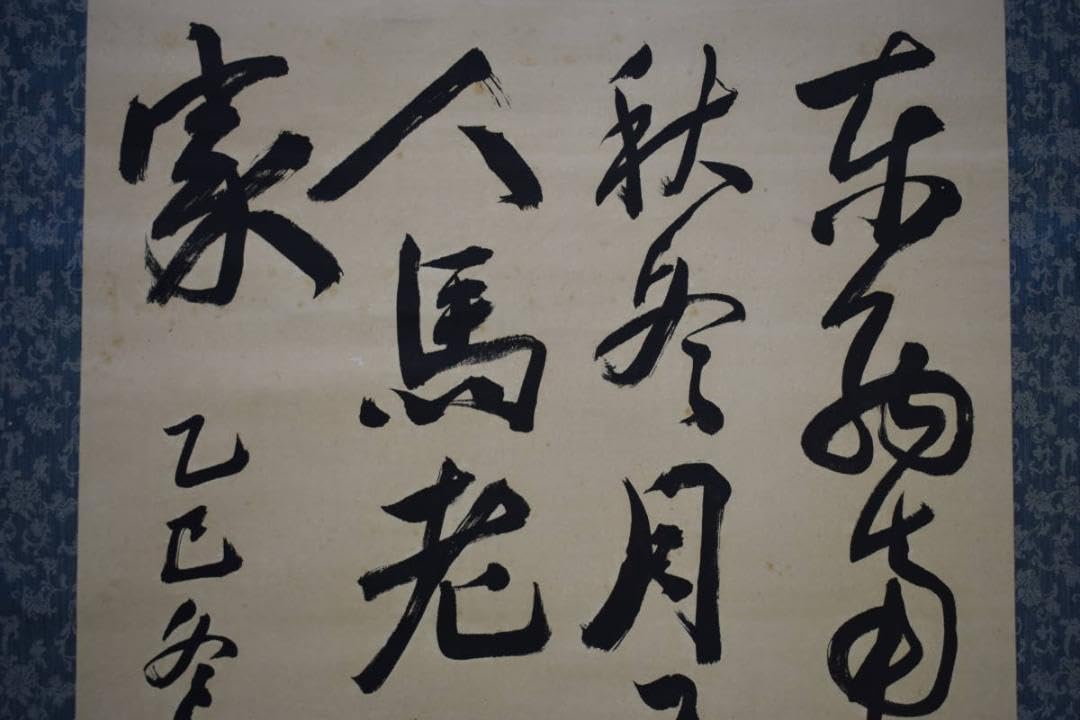 東南
秋冬月
人馬老
家
乙巳冬